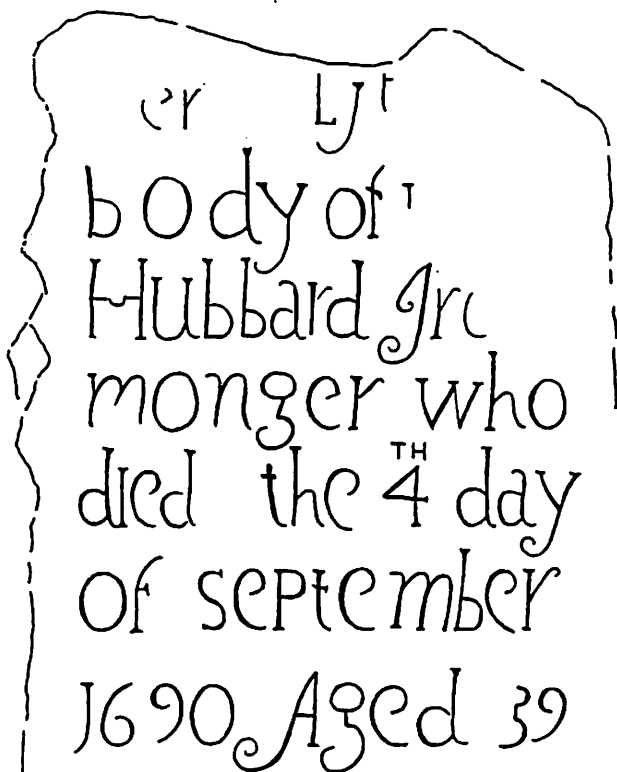 er Lyt
body of T
Hubbard Irc
monger who
died the 4TH day
of september
1690 Aged 39